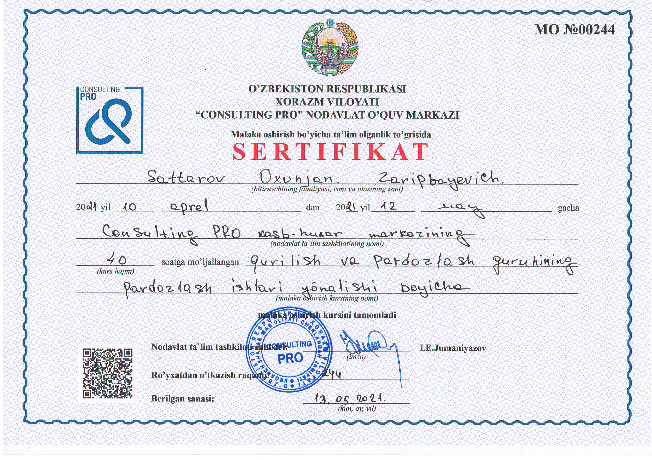 MO №00244
CONSULTING
PRO
O'ZBEKISTON RESPUBLIKASI
XORAZM VILOYATI
"CONSULTING PRO" NODAVLAT O'QUV MARKAZI
Malaka oshirish bo'yicha ta'lim olganlik to'g'risida
SERTIFIKAT
Sattarov Oxunjan Zaripbayevich
(bitiruvchining familiyasi, ismi va otasining ismi)
2021 yil 10 aprel dan 2021 yil 12 may gacha
Consulting PRO kasb-hunar markazining
(nodavlat ta'lim tashkilotining nomi)
40 soatga mo'ljallangan qurilish va pardozlash guruhining
(kurs hajmi)
pardozlash ishlari yônalishi boyicha
(malaka oshirish kursining nomi)
malaka oshirish kursini tamomladi
Nodavlat ta'lim tashkiloti
I.E.Jumaniyazov
(imzo)
CONSULTING
PRO
Ro'yxatdan o'tkazish raqami 244
Berilgan sanasi: 13.05.2021.
(kun, oy, yil)